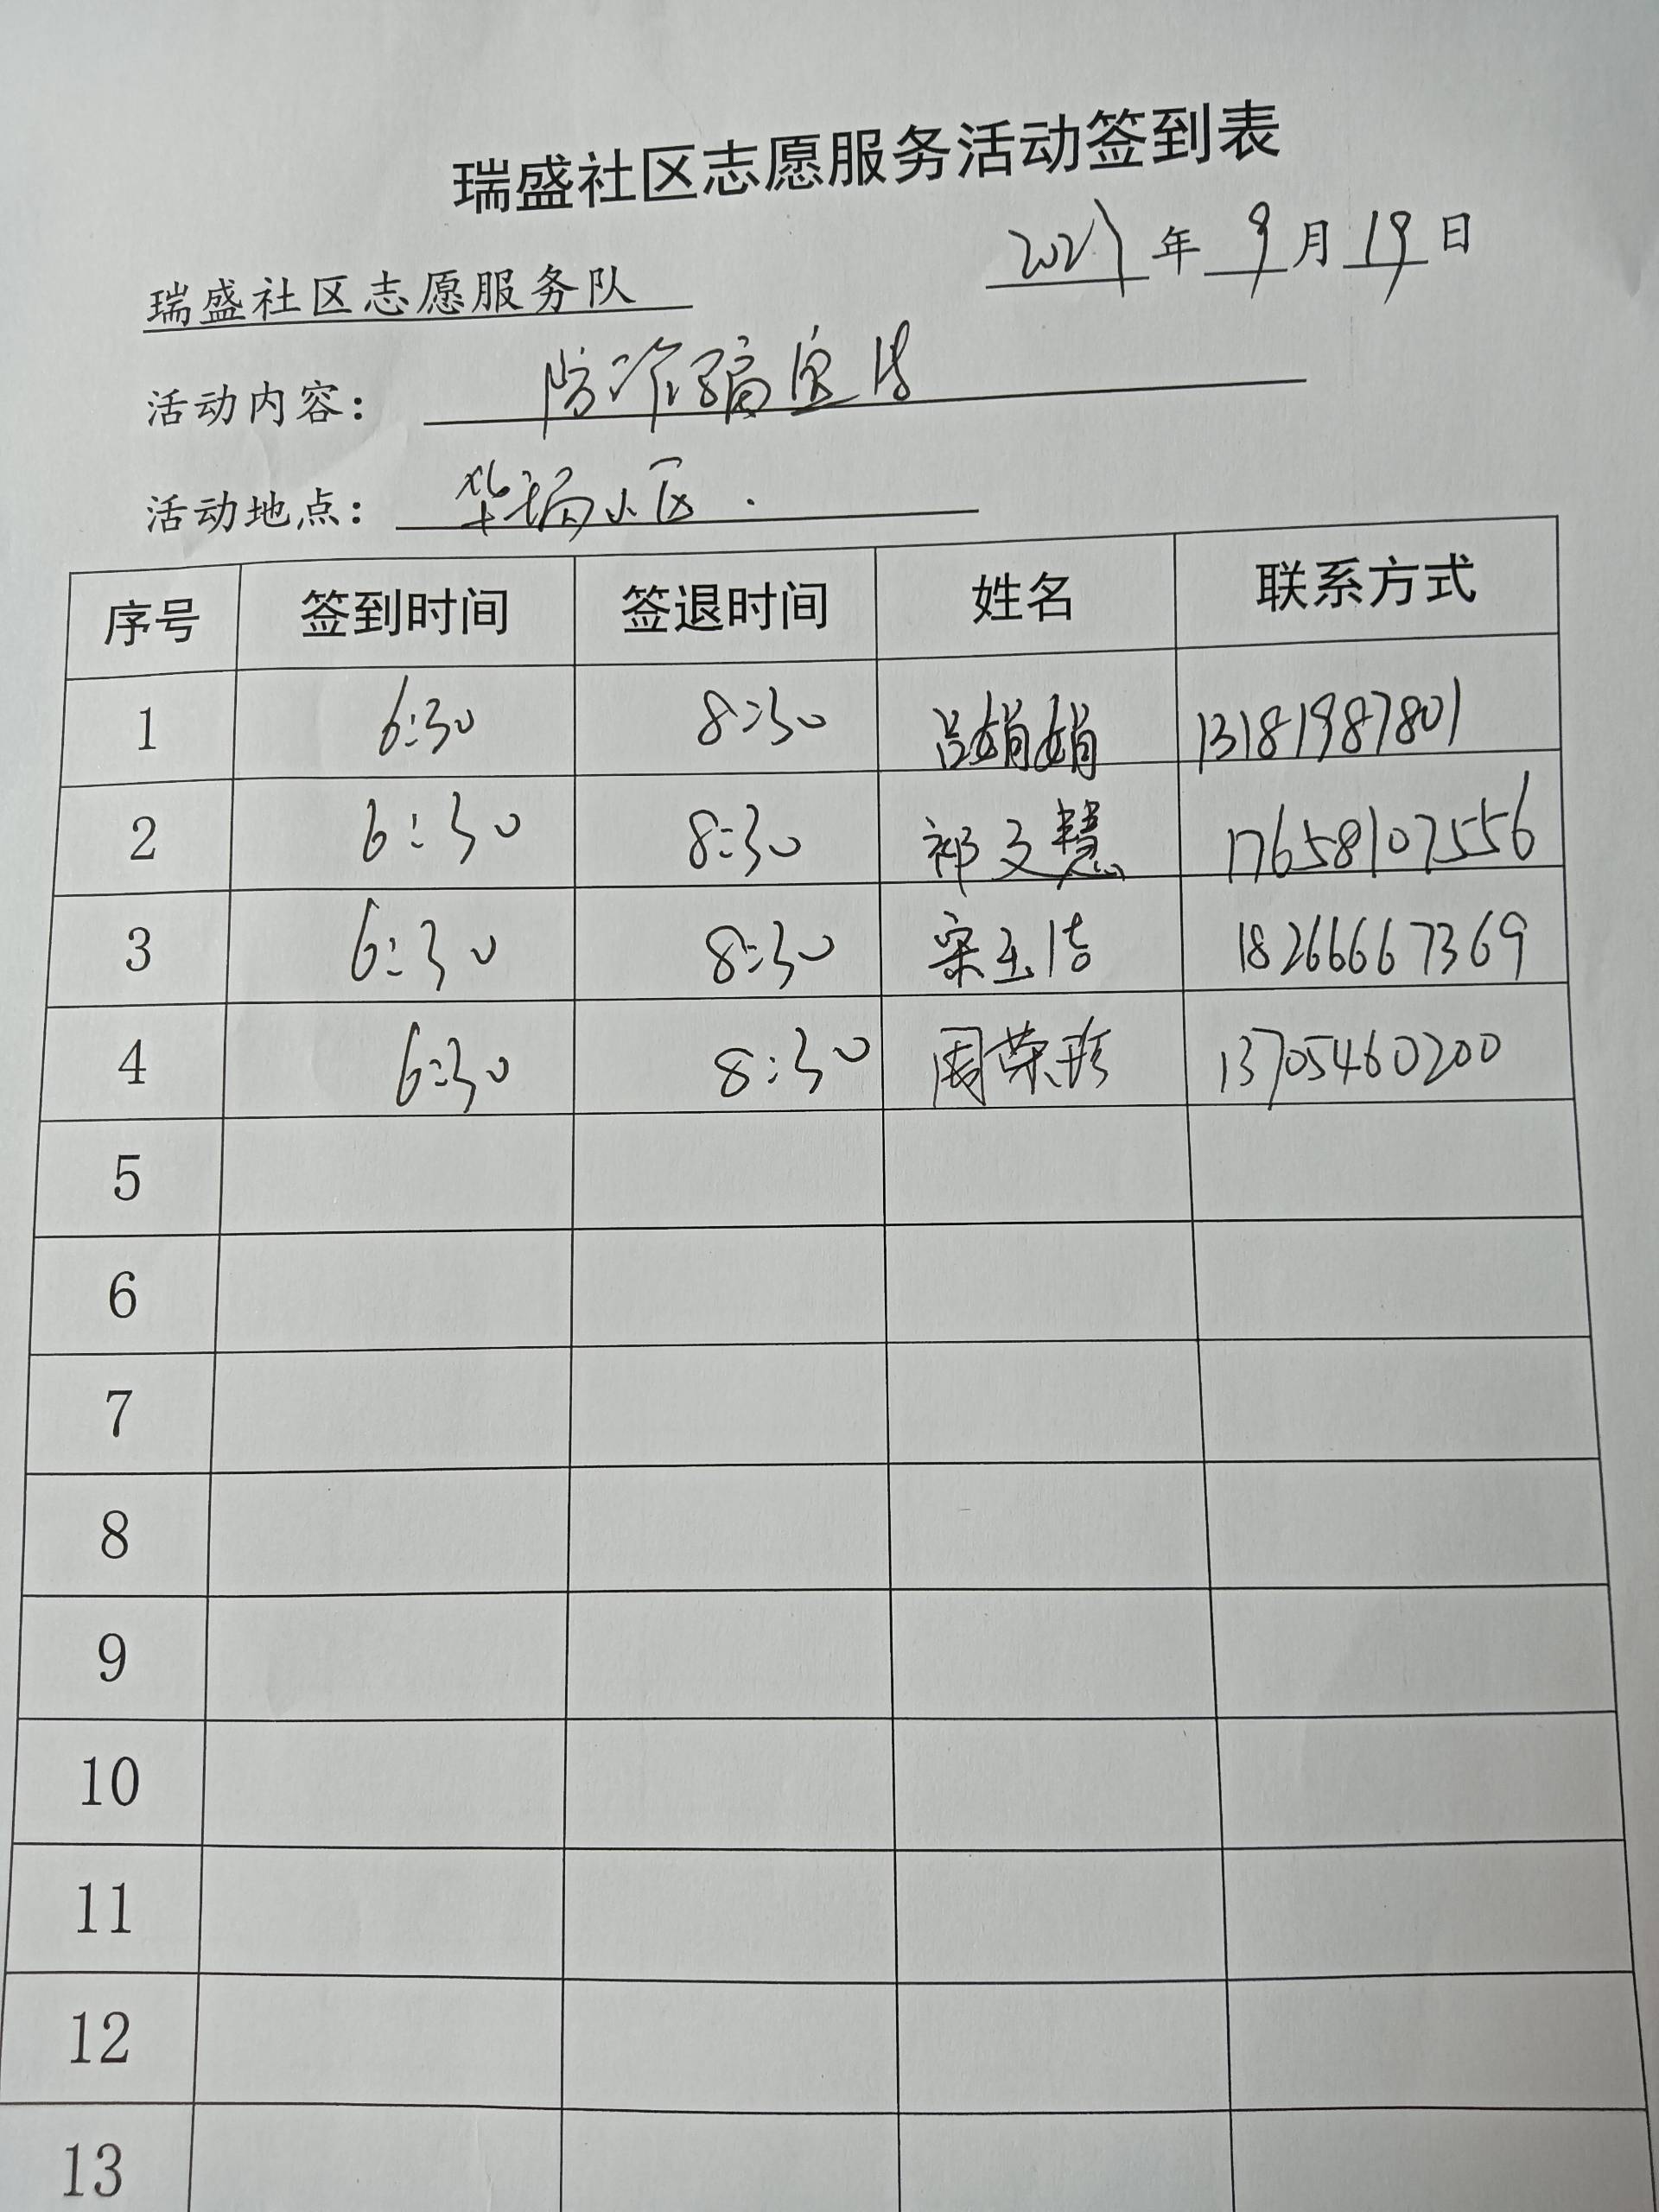 瑞盛社区志愿服务活动签到表
2021年 9月 19日
瑞盛社区志愿服务队
活动内容： 防诈骗宣传
活动地点： 华瑞小区.
序号 签到时间 签退时间 姓名 联系方式
1 6:30 8:30 吕娟娟 13181987801
2 6:30 8:30 祁文慧 17658107556
3 6:30 8:30 宋玉洁 18266667369
4 6:30 8:30 周荣珍 13705460200
5
6
7
8
9
10
11
12
13